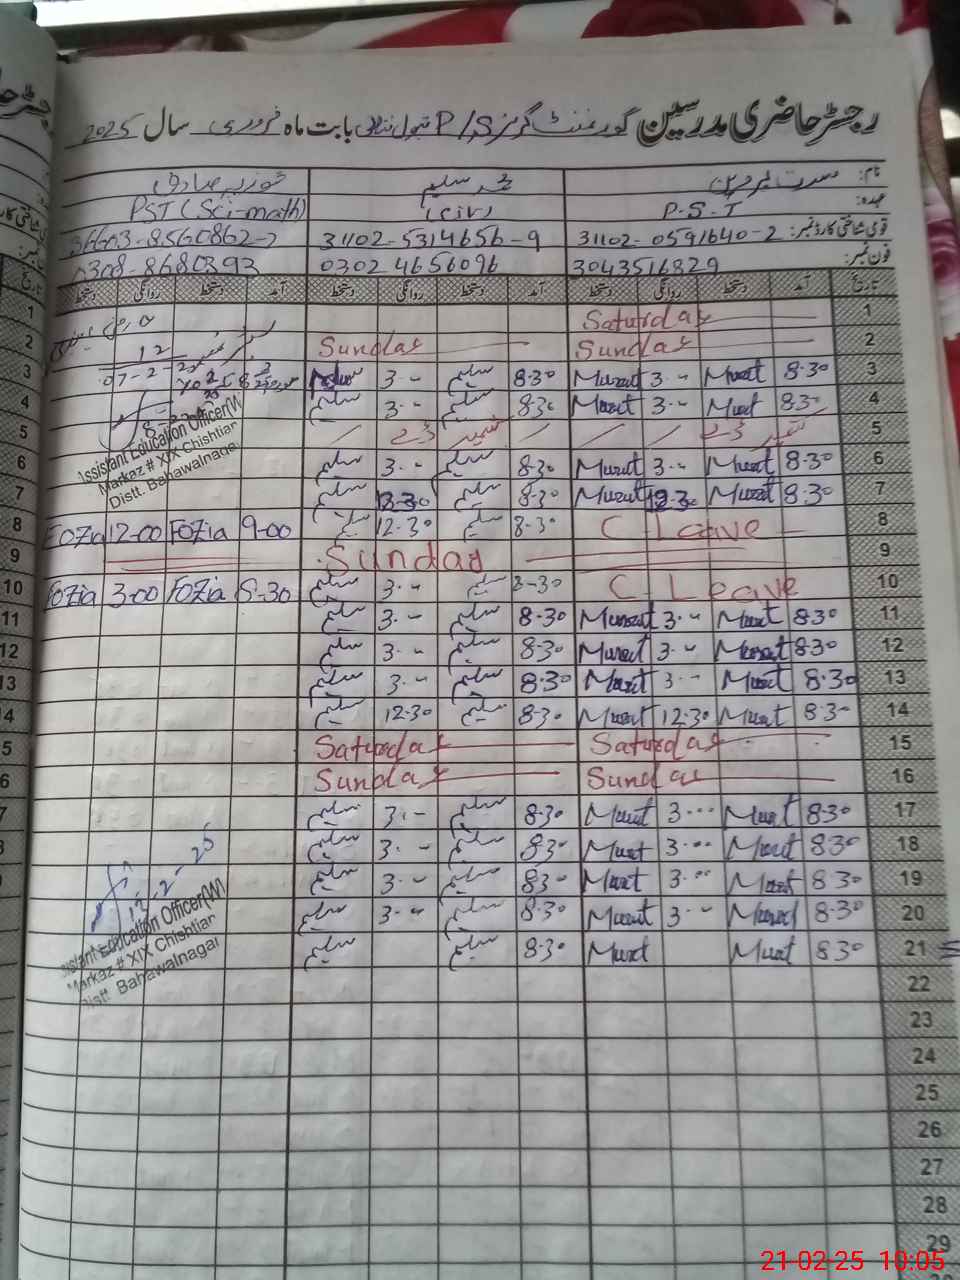 رجسٹر حاضری مدرسین گورنمنٹ گرلز P/S بابت ماہ فروری سال 2025
نام: مسرت محمد سلیم فوزیہ صادق
عہدہ: P.S.T (civ) PST (Sci-math)
قومی شناختی کارڈ نمبر: 31102-0591640-2 31102-5314656-9
فون نمبر: 3043516829 03024656096 0308-8680393
تاریخ آمد دستخط روانگی دستخط آمد دستخط روانگی دستخط آمد دستخط روانگی دستخط
1 Saturday
2 Sunday Sunday
3 8-30 Musrat 3-- Musrat 8-30 سلیم 3--
4 8-30 Musrat 3-- Musrat 8-30 سلیم 3-- سلیم
5 کشمیر ڈے کشمیر ڈے
Assistant Education Officer (W)
Markaz # XIX Chishtian
Distt. Bahawalnagar
6 8-30 Musrat 3-- Musrat 8-30 سلیم 3-- سلیم
7 8-30 Musrat 12-30 Musrat 8-30 سلیم 12-30 سلیم
8 C Leave 8-30 سلیم 12-30 سلیم 9-00 Fozia 12-00 Fozia
9 Sunday
10 C Leave 8-30 سلیم 3-- سلیم 8-30 Fozia 3-00 Fozia
11 8-30 Musrat 3-- Musrat 8-30 سلیم 3-- سلیم
12 8-30 Musrat 3-- Musrat 8-30 سلیم 3-- سلیم
13 8-30 Musrat 3-- Musrat 8-30 سلیم 3-- سلیم
14 8-30 Musrat 12-30 Musrat 8-30 سلیم 12-30 سلیم
15 Saturday Saturday
16 Sunday Sunday
17 8-30 Musrat 3-- Musrat 8-30 سلیم 3-- سلیم
18 8-30 Musrat 3-- Musrat 8-30 سلیم 3-- سلیم
19 8-30 Musrat 3-- Musrat 8-30 سلیم 3-- سلیم
20 8-30 Musrat 3-- Musrat 8-30 سلیم 3-- سلیم
21 8-30 Musrat Musrat 8-30 سلیم سلیم
Assistant Education Officer (W)
Markaz # XIX Chishtian
Distt. Bahawalnagar
22
23
24
25
26
27
28
29
21-02-25 10:05